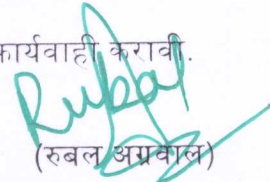 कार्यवाही करावी.
Rubal
(रुबल अग्रवाल)